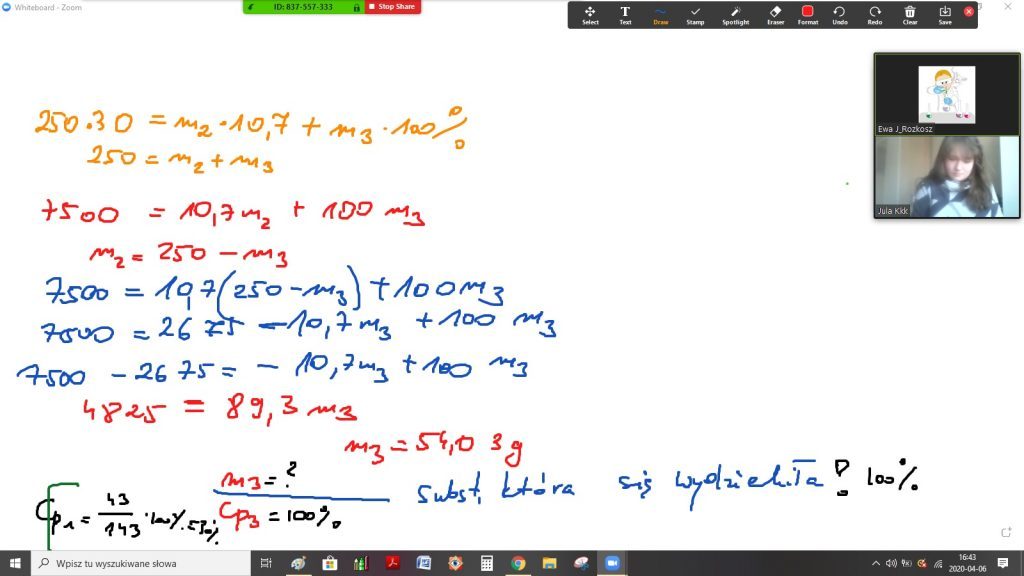 Whiteboard - Zoom
ID: 837-557-333
Stop Share
Select Text Draw Stamp Spotlight Eraser Format Undo Redo Clear Save
Ewa J_Rozkosz
Jula Kkk
250·30 = m₂·10,7 + m₃·100%
250 = m₂ + m₃
7500 = 10,7m₂ + 100 m₃
m₂ = 250 - m₃
7500 = 10,7(250 - m₃) + 100m₃
7500 = 2675 - 10,7m₃ + 100 m₃
7500 - 2675 = - 10,7m₃ + 100 m₃
4825 = 89,3 m₃
m₃ = 54,03g
m₃ = ?
subst, która się wydzieliła ? 100%
Cp₁ = 43/143 ·100% = 30%
Cp₃ = 100%
Wpisz tu wyszukiwane słowa
16:43
2020-04-06